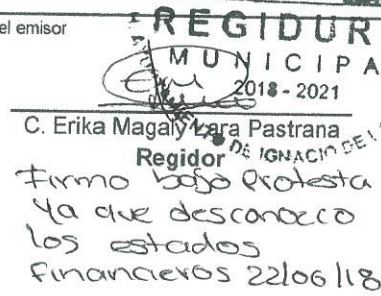 el emisor
REGIDUR
MUNICIPA
2018 - 2021
C. Erika Magaly Lara Pastrana
DE IGNACIO DE L
Regidor
Firmo bajo Protesta
Ya que desconozco
los estados
financieros 22/06/18